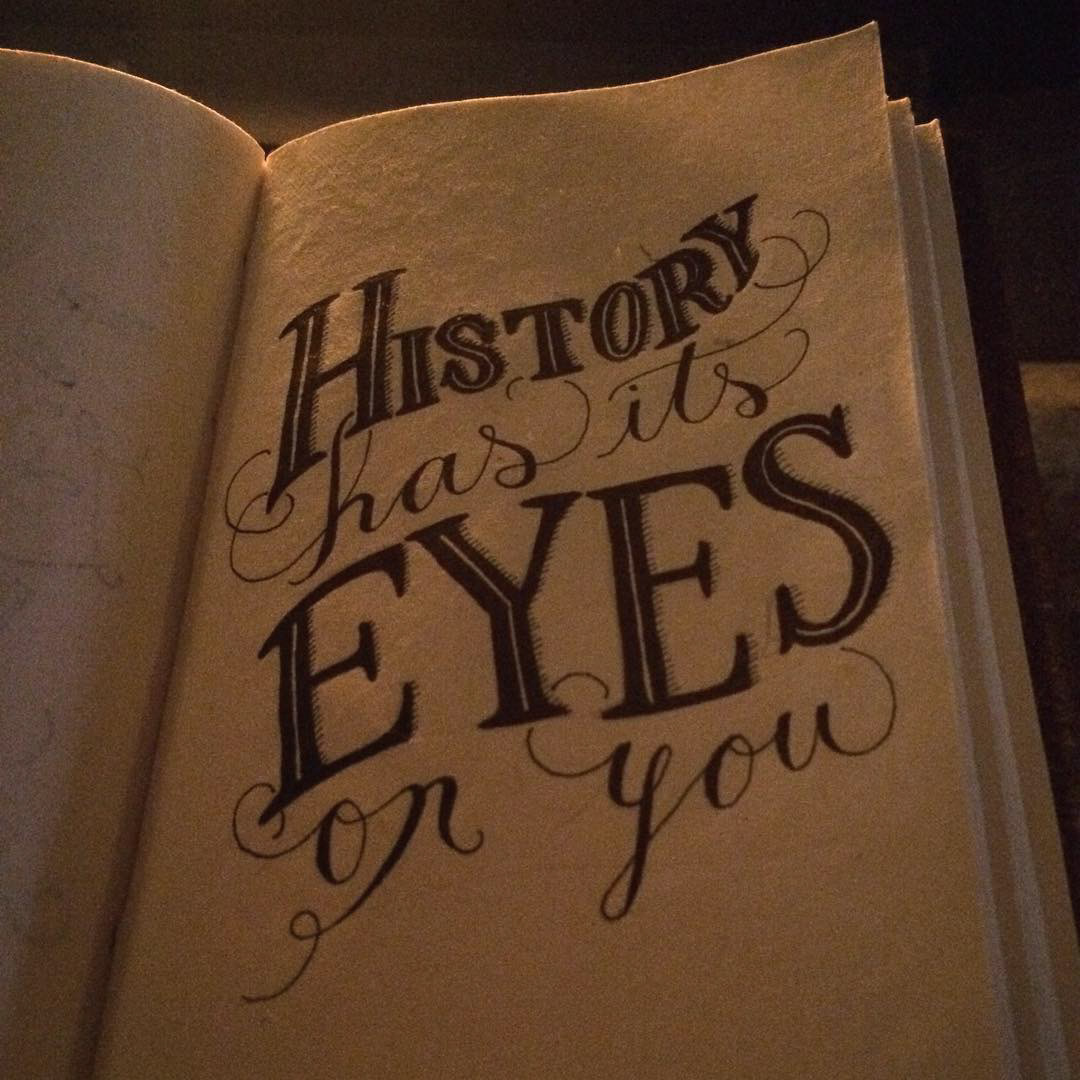 HISTORY
has its
EYES
on you